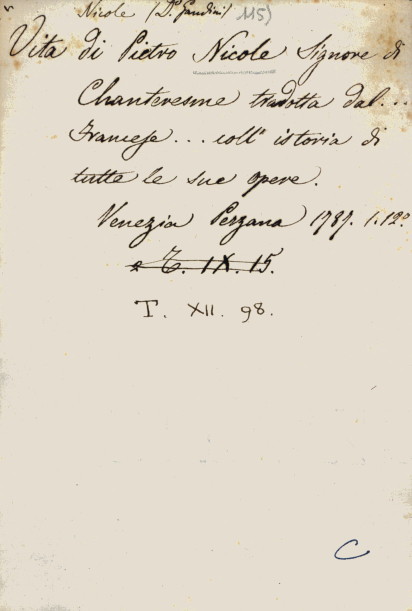 Nicole (P. Gaudini) 115)
Vita di Pietro Nicole Signore di
Chanteresme tradotta dal...
Francese... coll' istoria di
tutte le sue opere.
Venezia Pezzana 1787. 1. 12º
T. IX. 15.
T. XII. 98.
C